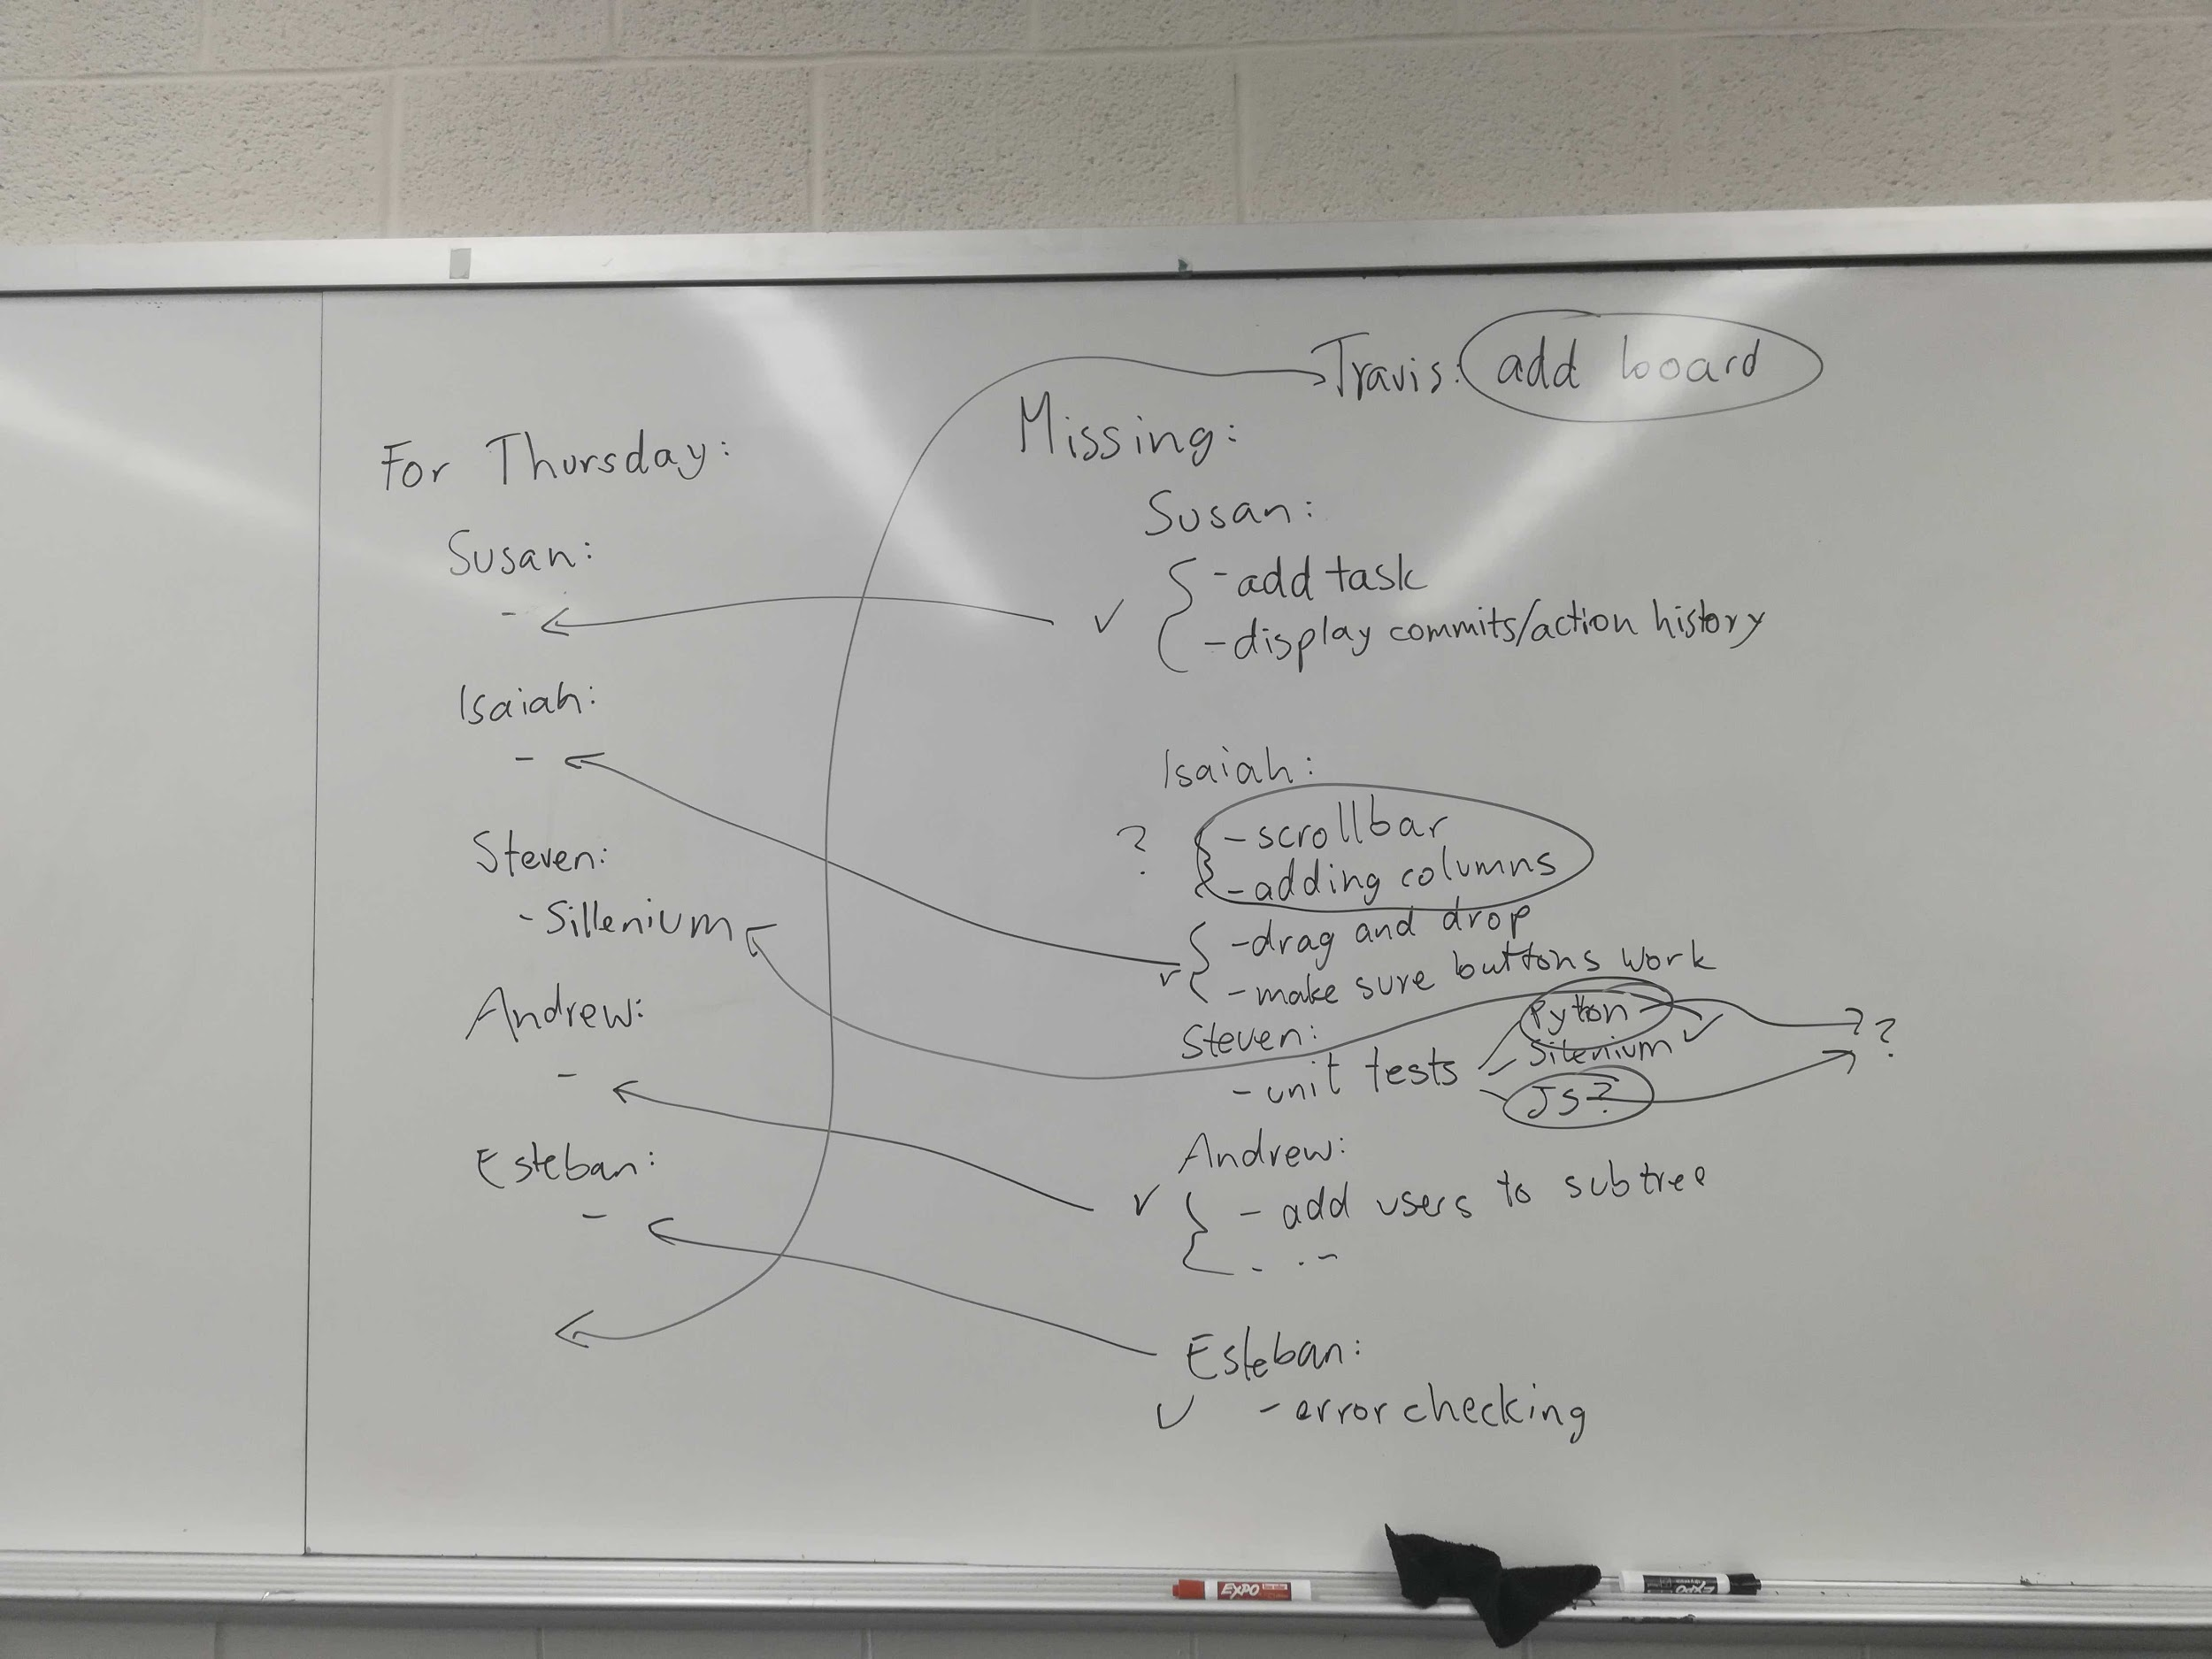 For Thursday:
Susan:
-
Isaiah:
-
Steven:
- Sillenium
Andrew:
-
Esteban:
-
Travis: add board
Missing:
Susan:
✓ { - add task
- display commits/action history
Isaiah:
? { - scrollbar
- adding columns
✓ { - drag and drop
- make sure buttons work
Steven:
- unit tests
Pyton
Silenium ✓
JS?
?
Andrew:
✓ { - add users to subtree
...
Esteban:
✓ - error checking
EXPO
EXPO